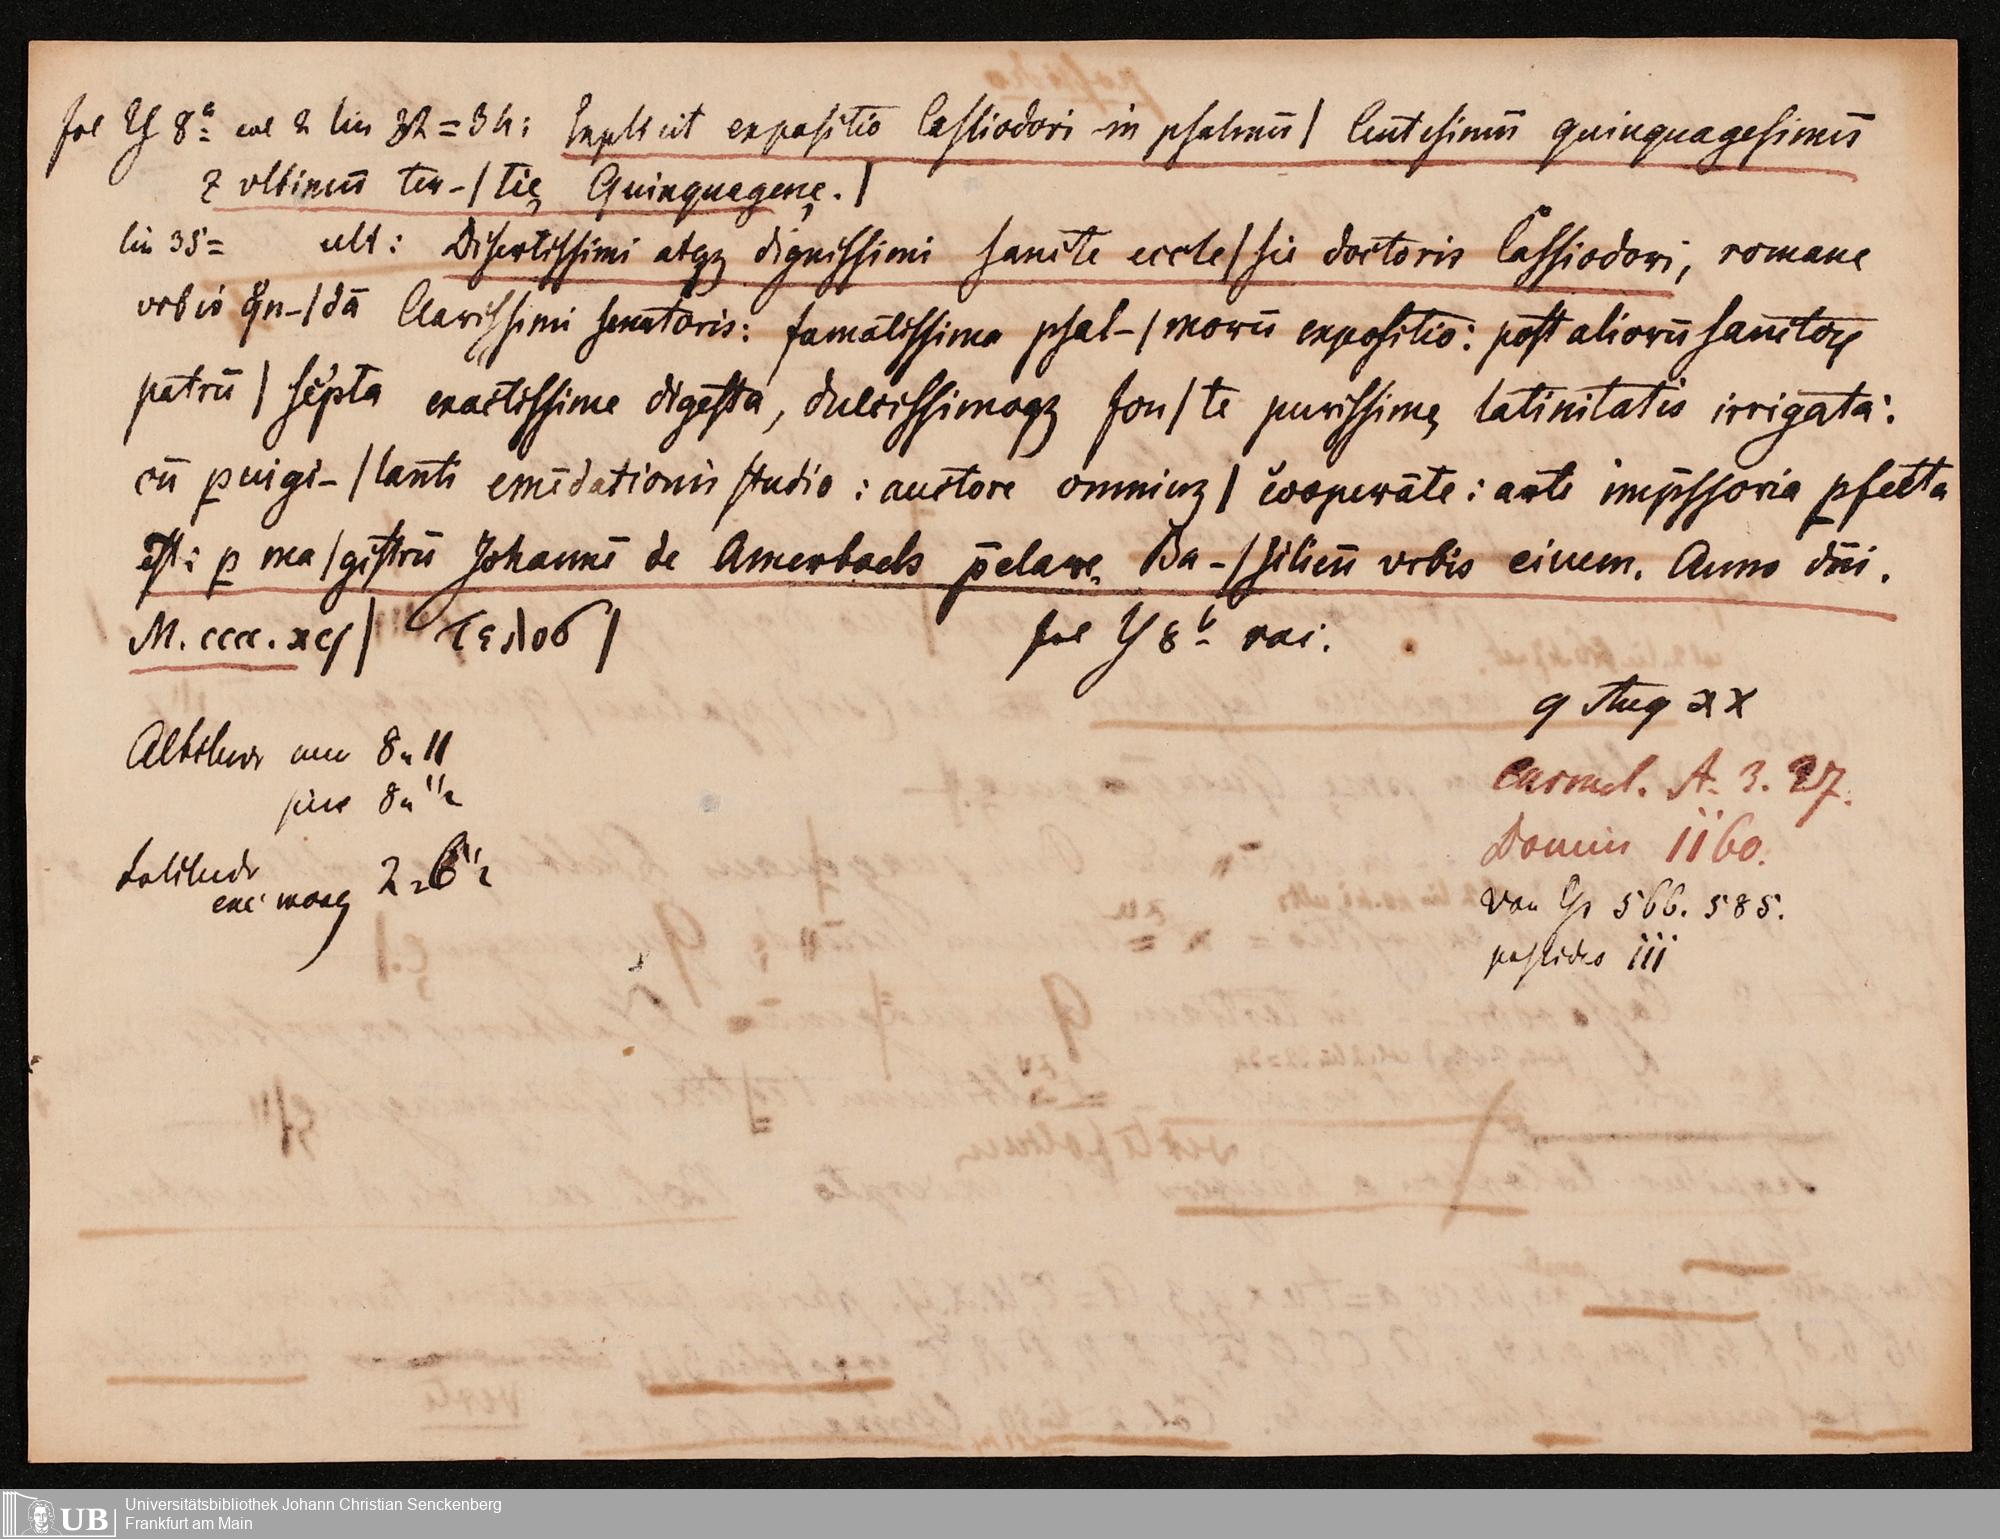 fol 8ª col 2 lin 32=34: Explicit expositio Cassiodori in psalmū| Centesimū quinquagesimū
⁊ vltimū ter-/tię Quinquagenę.|
lin 35= ult: Disertissimi atqꝫ dignissimi sancte eccle/sie doctoris Cassiodori, romane
vrbis qn-/dā Clarissimi senatoris: famatissima psal-/morū expositio: post aliorū sanctoꝝ
patrū | scꝛ̄pta exactissime digesta, dulcissimoqꝫ fon/te purissimę latinitatis irrigata:
cū ꝑuigi-/lanti emēdationis studio: auctore omniuꝫ| cooperāte: arte imp̄ssoria ꝑfecta
ēst: ꝑ ma/gistrū Johannē de Amerbach p̄clarę Ba-/silieñ vrbis ciuem. Anno dñi.
M. cccc. xcj| Τελος| fol 8ᵇ vac.
Aug xx
Carmel. A. 3. 27.
Domin 1160.
von 566. 585.
possideo iii